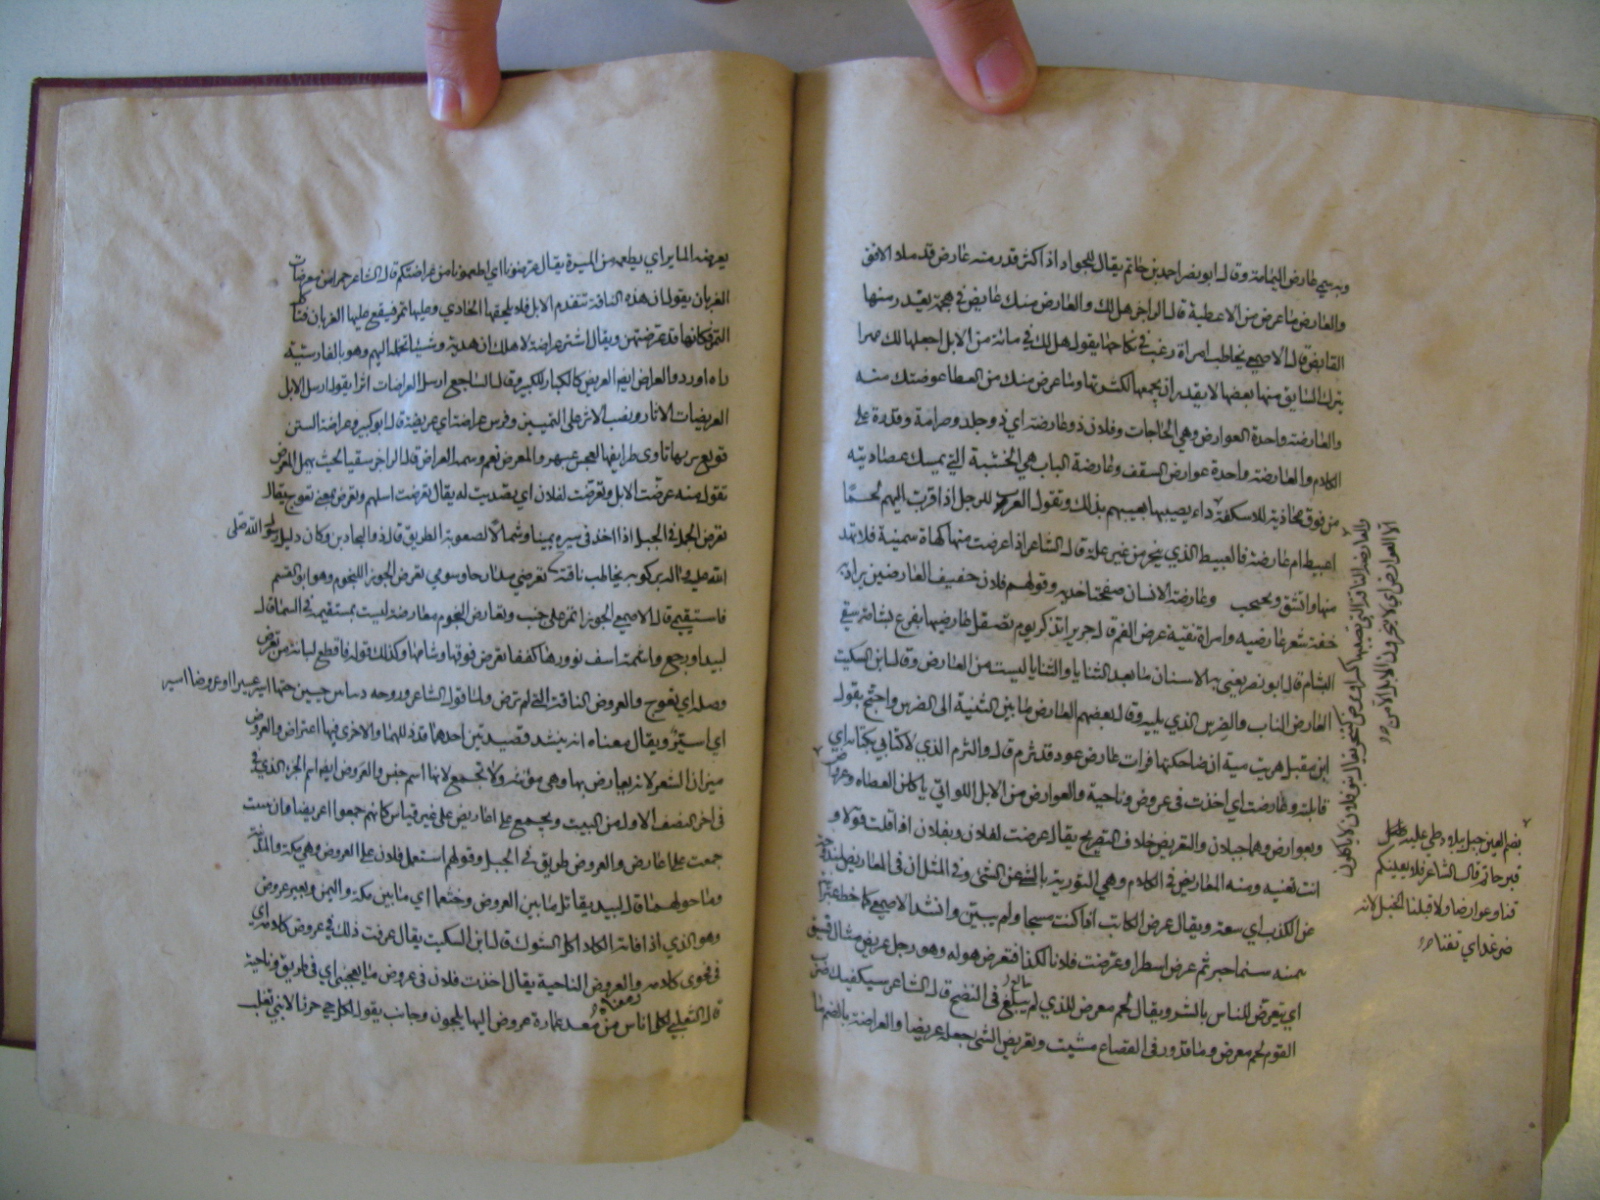 وبه سمي عارض اليمامة وقال ابو نصر احمد بن حاتم يقال للجراد اذا كثر قد مر منه عارض قد ملا الافق
والعارض ما عرض من الاعطية قال الراجز هل لك والعارض منك عايض في هجمة يغدر منها
القابض قال الاصمعي يخاطب امراة رغب في نكاحها يقول هل لك في مائة من الابل اجعلها لك مهرا
يترك السابق منها بعضها لا يقدر ان يجمعها لكثرتها وما عرض منك من العطا عوضتك منه
والعارضة واحدة العوارض وهي الحاجات وفلان ذو عارضة اي ذو جلد وصرامة وقدرة على
الكلام والعارضة واحدة عوارض السقف وعارضة الباب هي الخشبة التي يمسك عضادتيه
من فوق محاذية للاسكفة يصيبها بذلك وتقول العرب للرجل اذا قرب اليهم لحما
اعبيط ام عارضة فالعبيط الذي ينحر من غير علة قال الشاعر اذا عرضت منها كهاة سمينة فلا تهد
منها واتشق وتجبجب وعارضة الانسان صفحتا خديه وقولهم فلان خفيف العارضين يراد به
خفة شعر عارضيه وامراة نقية عرض الفم قال جرير اتذكر يوم تصقل عارضيها بفرع بشامة سقي
البشام قال ابو نصر يعني به الاسنان ما بعد الثنايا والثنايا ليست من العارض وقال ابن السكيت
العارض الناب والضرس الذي يليه وقال بعضهم العارض ما بين الثنية الى الضرس واحتج بقول
ابن مقبل هزئت مية ان ضاحكتها فرات عارض عود قد ثرم قال والثرم الذي لا
قابلته وعارضت اي اخذت في عروض وناحية والعوارض من الابل اللواتي ياكلن العضاه
وبعوارض وهما جبلان والتعريض خلاف التصريح يقال عرضت لفلان وبفلان اذا قلت قولا و
انت تعنيه ومنه المعاريض في الكلام وهي التورية بالشي عن الشي وفي المثل ان في المعاريض لمندوحة
عن الكذب اي سعة ويقال عرض الكاتب اذا كتب مثبجا ولم يبين وانشد الاصمعي كما خط عبرانية
بيمينه بتيما حبر ثم عرض اسطرا وعرضت فلانا لكذا فتعرض هو له وهو رجل عريض مثال فسيق
اي يتعرض للناس بالشر ويقال لحم معرض للذي لم يبالغ في النضج قال الشاعر سيكفيك ضرب
القوم لحم معرض وما قدور في القصاع مشيب وتعريض الشي جعله عريضا والعراضة بالضم ما
والعارضة الناقة التي يصيبها كسر او مرض فتنحر يقال بنو فلان لا ياكلون
الا العوارض اي لا ينحرون الابل الا من
بضم العين جبل ببلاد طي عليه
قبر حاتم قال الشاعر فلابغينكم
قنا وعوارضا ولاقبلن الخيل لابة
ضرغد اي
يعرضه الماير اي يطعمه من الميرة يقال عرضونا اي اطعمونا من عراضتكم قال الشاعر حمراء من معرضات
الغربان يقول ان هذه الناقة تتقدم الابل فلا يلحقها الحادي وعليها تمر فيقع عليها الغربان فتاكل
التمر فكانها قد عرضتهن ويقال اشتر عراضة لاهلك اي هدية وشيئا تحمله اليهم وهو بالفارسية
راه اورد والعراض ايضا العريض كالكبار للكبير وقال الساجع ارسل العراضات اثرا يقول ارسل الابل
العريضات الاثار ونصب الاثر على التمييز وقوس عراضة اي عريضة قال ابو كبير وعراضة السيتين
توبع بريها تاوى طرايفها بعجس عبهر والمعرض نعم وسمه العراض قال الراجز سقيا بحيث يهمل المعرض
تقول منه عرضت الابل وتعرضت لفلان اي تصديت له يقال تعرضت اسلهم وتعرض بمعنى تعوج يقال
تعرض الجمل في الجبل اذا اخذ في سيره يمينا وشمالا لصعوبة الطريق قال ذو البجادين وكان دليل رسول الله صلى
الله عليه بركوبه يخاطب ناقته تعرضي مدارجا وسومي تعرض الجوزا للنجوم وهو ابو القسم
فاستقيمي قال الاصمعي الجوزا تمر على جنب وتعارض النجوم معارضة ليست بمستقيمة في السما قال
لبيد او رجع واشمة اسف نوورها كففا تعرض فوقها وشامها وكذلك قوله فاقطع لبانة من تعرض
وصله اي تعوج والعروض الناقة التي لم ترض واما قول الشاعر وروحة دنيا بين حيين رحتها اسير عسيرا او عروضا اسير
اي اسير ويقال معناه انه ينشد قصيدتين احداهما قد ذللها والاخرى فيها اعتراض والعروض
ميزان الشعر لانه يعارض بها وهي مؤنثة ولا تجمع لانها اسم جنس والعروض ايضا اسم الجزء الذي في
في اخر النصف الاول من البيت ويجمع على اعاريض على غير قياس كانهم جمعوا اعريضا وان شئت
جمعت على عارض والعروض طريق في الجبل وقولهم استعمل فلان على العروض وهي مكة والمدينة
وما حولهما قال لبيد يقاتل ما بين العروض وخثعما اي ما بين مكة واليمن وبعير عروض
وهو الذي اذا فاته الكلا اكل الشوك قال ابن السكيت يقال عرفت ذلك في عروض كلامه اي
في فحوى كلامه والعروض الناحية يقال اخذت فلان في عروض ما يعجبني اي في طريق وناحية
قال التغلبي لكل اناس من معد عمارة عروض اليها يلجون وجانب يقول لكل حي حرز الا بني تغلب